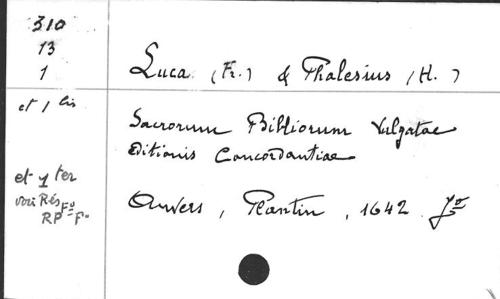 310
13
1
Luca (Fr.) & Thalesius (H.)
et 1 bis
Sacrorum Bibliorum Vulgatae
Editionis Concordantiae
et 1 ter
voir Rés
RP F°
Anvers, Plantin, 1642. f°